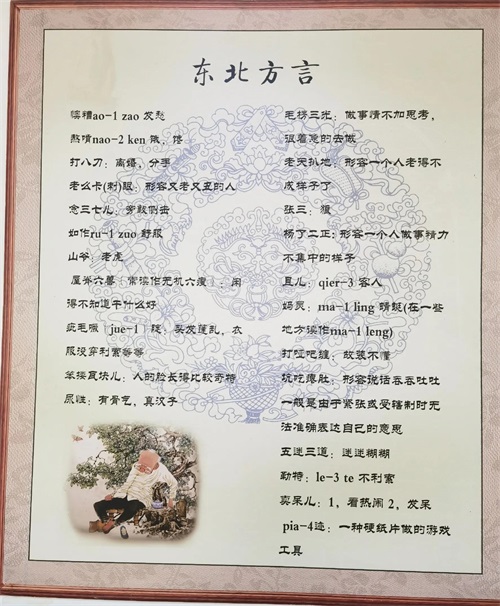 东北方言
懊糟ao-1 zao 发愁
熬啃nao-2 ken 饿、馋
打八刀：离婚，分手
老么卡(刺)眼：形容又老又丑的人
念三七儿：旁敲侧击
如作ru-1 zuo 舒服
山爷：老虎
屋脊六兽（常读作无机六瘦）：闲
得不知道干什么好
疵毛撅（jue-1）腚，头发蓬乱，衣
服没穿利索等等
笨搂瓦块儿：人的脸长得比较奇特
尿性：有骨气，真汉子
毛楞三光：做事情不加思考，
很着急的去做
老天扒地：形容一个人老得不
成样子了
张三：狼
杨了二正：形容一个人做事精力
不集中的样子
且儿：qier-3 客人
妈灵：ma-1 ling 蜻蜓(在一些
地方读作ma-1 leng)
打哑吧缠：故装不懂
吭吃瘪肚：形容说话吞吞吐吐
一般是由于紧张或受辖制时无
法准确表达自己的意思
五迷三道：迷迷糊糊
勒特：le-3 te 不利索
卖呆儿：1，看热闹 2，发呆
pia-4迹：一种硬纸片做的游戏
工具